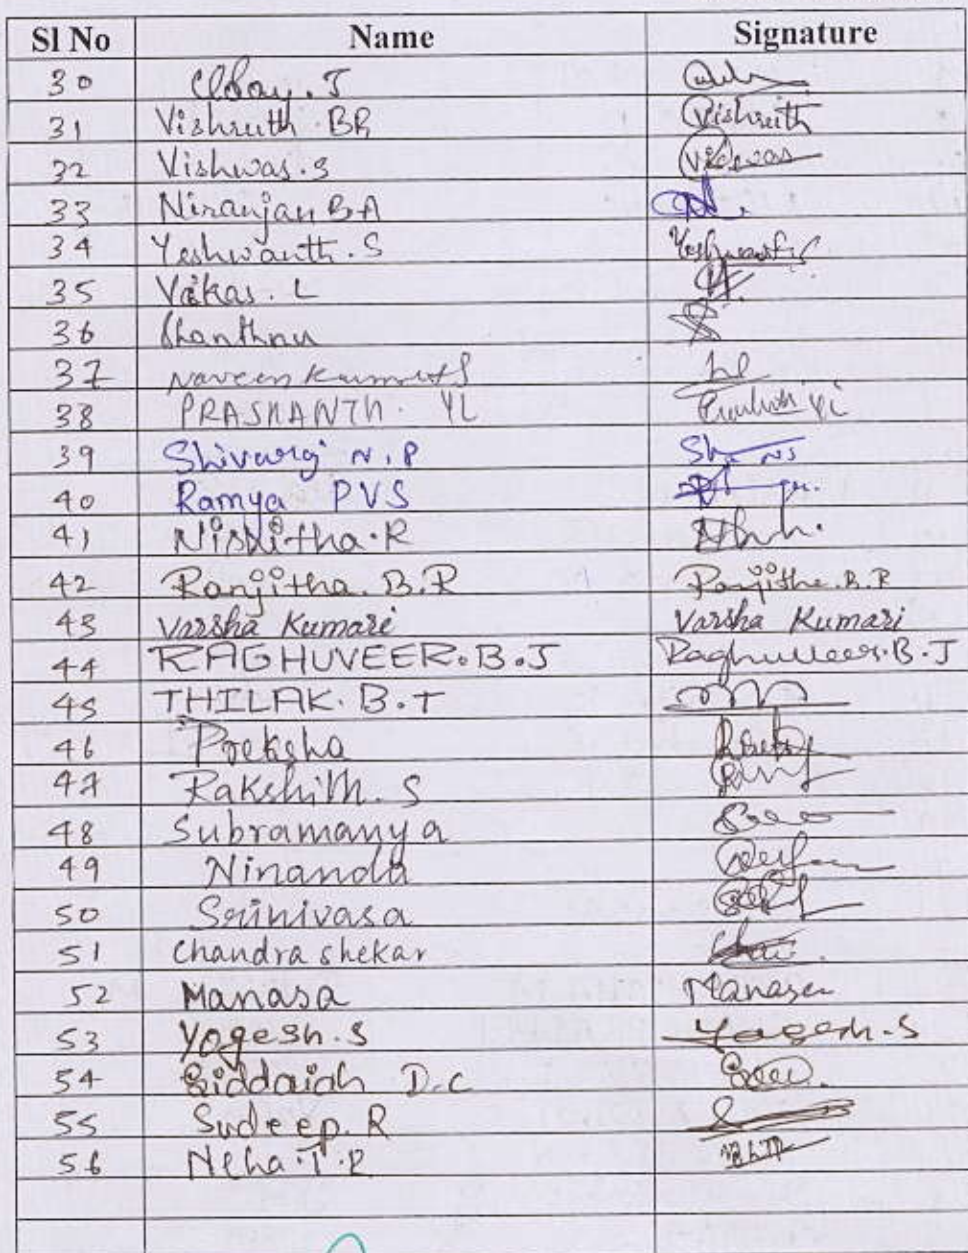 Sl No Name Signature
30 Uday. J
31 Vishruth. BR Vishruth
32 Vishwas. S Vishwas
33 Niranjan B A
34 Yeshwanth. S Yeshwanth S
35 Vikas. L
36 Shanthnu
37 Naveen Kumar S
38 PRASHANTH. YL Prashanth YL
39 Shivaraj N. P
40 Ramya PVS
41 Nishitha. R
42 Ranjitha. B. R Ranjitha. B. R
43 Varsha Kumari Varsha Kumari
44 RAGHUVEER. B. J Raghuveer. B. J
45 THILAK. B. T
46 Preksha
47 Rakshith. S
48 Subramanya
49 Ninanda
50 Srinivasa
51 Chandra shekar
52 Manasa Manasa
53 Yogesh. S Yogesh. S
54 Siddaiah D. C
55 Sudeep. R
56 Neha. T. R